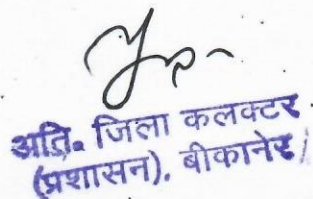 अति. जिला कलक्टर
(प्रशासन), बीकानेर